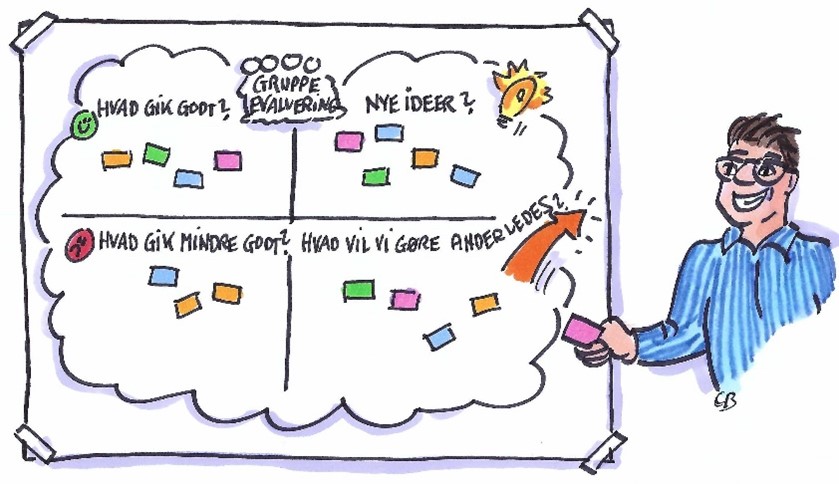 GRUPPE
EVALUERING
HVAD GIK GODT?
NYE iDEER?
HVAD GIK MiNDRE GODT?
HVAD ViL Vi GØRE ANDERLEDES?
CB